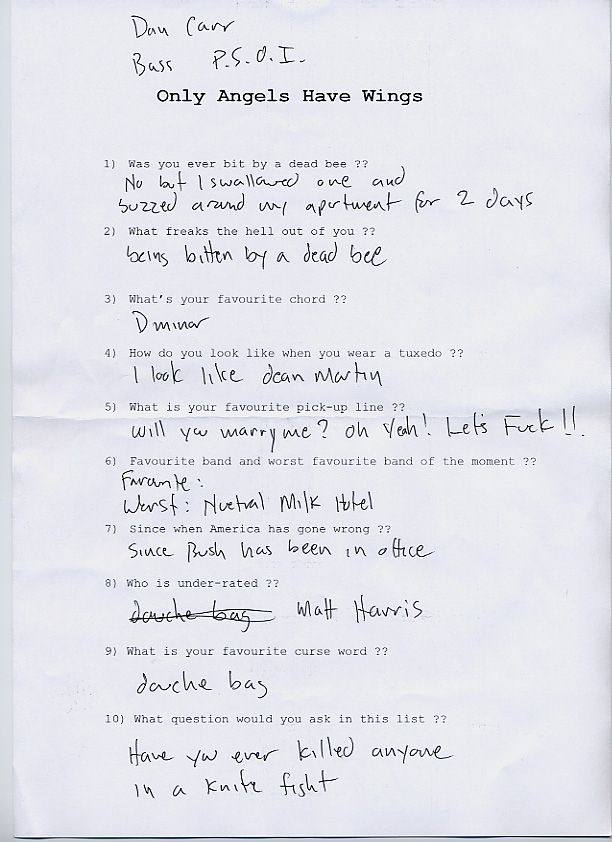 Dan Carr
Bass P.S.O.I.
Only Angels Have Wings
1) Was you ever bit by a dead bee ??
No but I swallowed one and
buzzed around my apartment for 2 days
2) What freaks the hell out of you ??
being bitten by a dead bee
3) What's your favourite chord ??
D minor
4) How do you look like when you wear a tuxedo ??
I look like dean Martin
5) What is your favourite pick-up line ??
will you marry me? Oh Yeah! Let's Fuck!!
6) Favourite band and worst favourite band of the moment ??
Favorite:
Worst: Nuetral Milk Hotel
7) Since when America has gone wrong ??
Since Bush has been in office
8) Who is under-rated ??
douche bag Matt Harris
9) What is your favourite curse word ??
douche bag
10) What question would you ask in this list ??
Have you ever killed anyone
in a knife fight